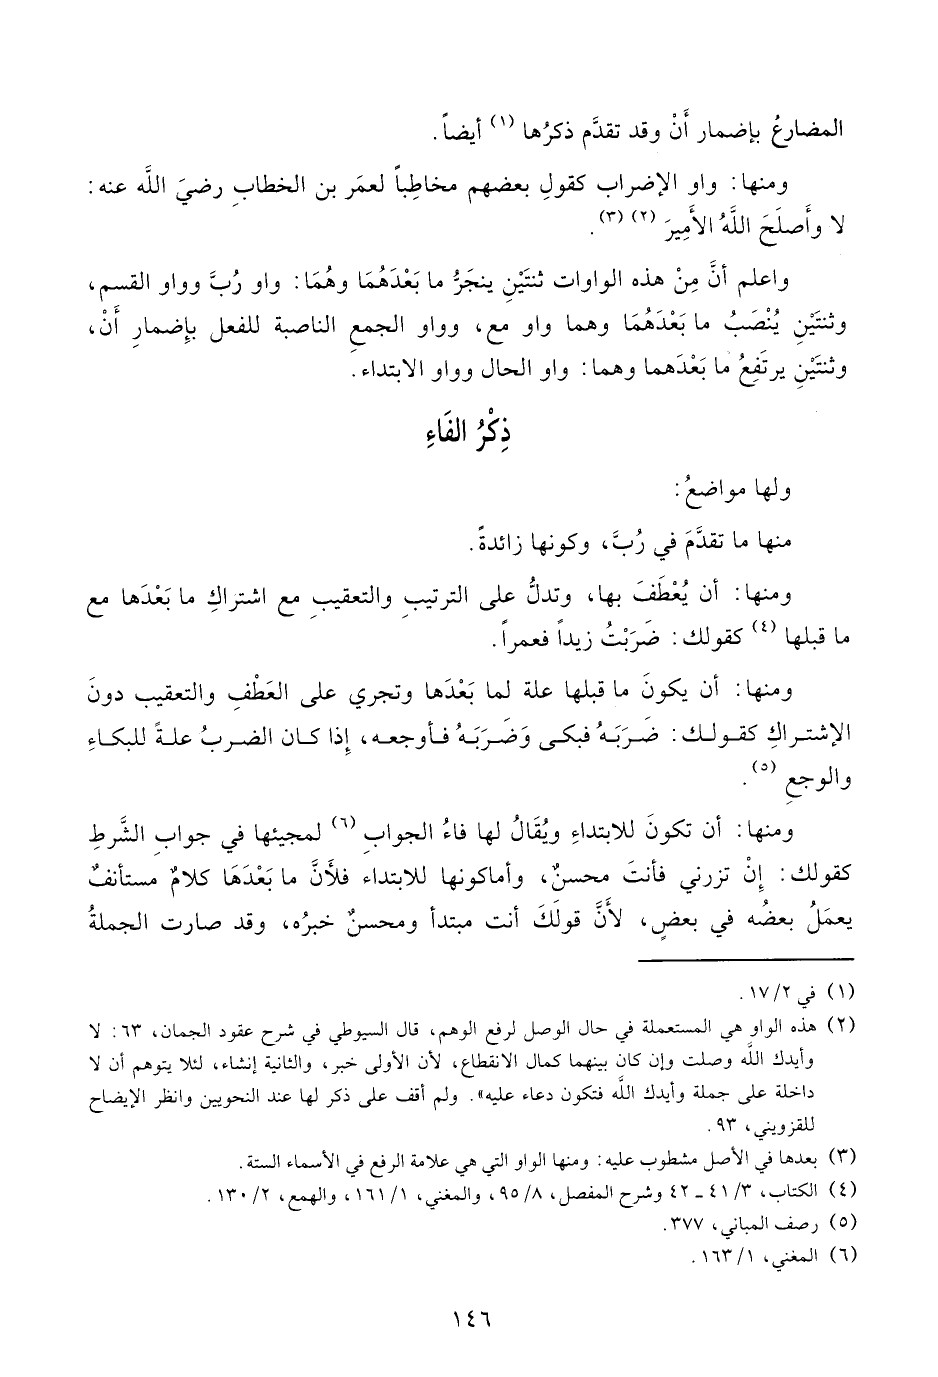 المضارعُ بإضمار أَنْ وقد تقدَّم ذكرُها (١) أيضاً.
ومنها: واو الإضراب كقولِ بعضهم مخاطِباً لعمَر بن الخطابِ رضيَ اللَّه عنه:
لا وأَصلَحَ اللَّهُ الأَمِيرَ (٢) (٣).
واعلم أنَّ مِنْ هذه الواوات ثنتَيْنِ ينجَرُّ ما بَعْدَهُمَا وهُمَا: واو رُبَّ وواو القسم،
وثنتَيْنِ يُنْصَبُ ما بَعْدَهُمَا وهما واو مع، وواو الجمعِ الناصبة للفعل بإضمارِ أَنْ،
وثنتَيْنِ يرتَفِعُ ما بَعْدَهما وهما: واو الحال وواو الابتداء.
ذِكْرُ الفَاءِ
ولها مواضعُ:
منها ما تقدَّمَ في رُبَّ، وكونها زائدةً.
ومنها: أن يُعْطَفَ بها، وتدلُّ على الترتيبِ والتعقيبِ مع اشتراكِ ما بَعْدَها مع
ما قبلها (٤) كقولك: ضَرَبْتُ زيداً فعمراً.
ومنها: أن يكونَ ما قبلها علة لما بَعْدَها وتجري على العَطْفِ والتعقيب دونَ
الإشتراكِ كقولك: ضَرَبَهُ فبكى وَضَرَبَهُ فأوجعه، إذا كان الضربُ علةً للبكاءِ
والوجعِ (٥).
ومنها: أن تكونَ للابتداءِ ويُقَالُ لها فاءُ الجوابِ (٦) لمجيئها في جوابِ الشَّرطِ
كقولك: إِنْ تزرني فأنتَ محسنٌ، وأماكونها للابتداء فلأَنَّ ما بَعْدَهَا كلامٌ مستأنفٌ
يعمَلُ بعضُه في بعضٍ، لأَنَّ قولَكَ أنت مبتدأ ومحسنٌ خبرُه، وقد صارت الجملةُ
(١) في ١٧/٢.
(٢) هذه الواو هي المستعملة في حال الوصل لرفع الوهم، قال السيوطي في شرح عقود الجمان، ٦٣: لا
وأيدك اللَّه وصلت وإن كان بينهما كمال الانقطاع، لأن الأولى خبر، والثانية إنشاء، لئلا يتوهم أن لا
داخلة على جملة وأيدك اللَّه فتكون دعاء عليه». ولم أقف على ذكر لها عند النحويين وانظر الإيضاح
للقزويني، ٩٣.
(٣) بعدها في الأصل مشطوب عليه: ومنها الواو التي هي علامة الرفع في الأسماء الستة.
(٤) الكتاب، ٣/ ٤١ - ٤٢ وشرح المفصل، ٨/ ٩٥، والمغني، ١/ ١٦١، والهمع، ٢/ ١٣٠.
(٥) رصف المباني، ٣٧٧.
(٦) المغني، ١/ ١٦٣.
١٤٦